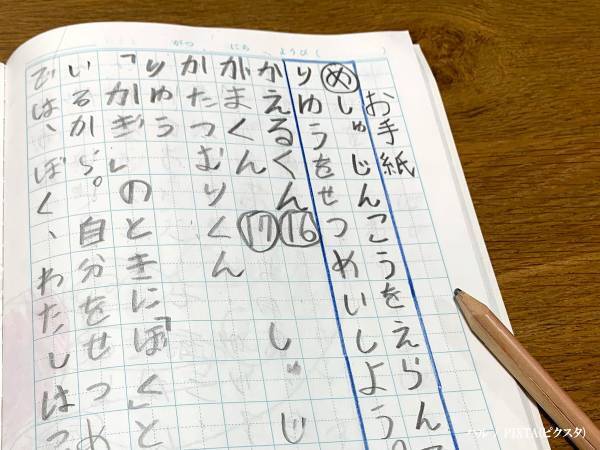 がつ にち ようび( )
お手紙
めしゅじんこうをえらん
りゆうをせつめいしよう
かえるくん⑯
がまくん⑰ しゅじ
かたつむりくん
りゆう
「かぎ」のときに「ぼく」と
いるから。自分をせつめ
では、ぼく、わたしはつ
PIXTA(ピクスタ)